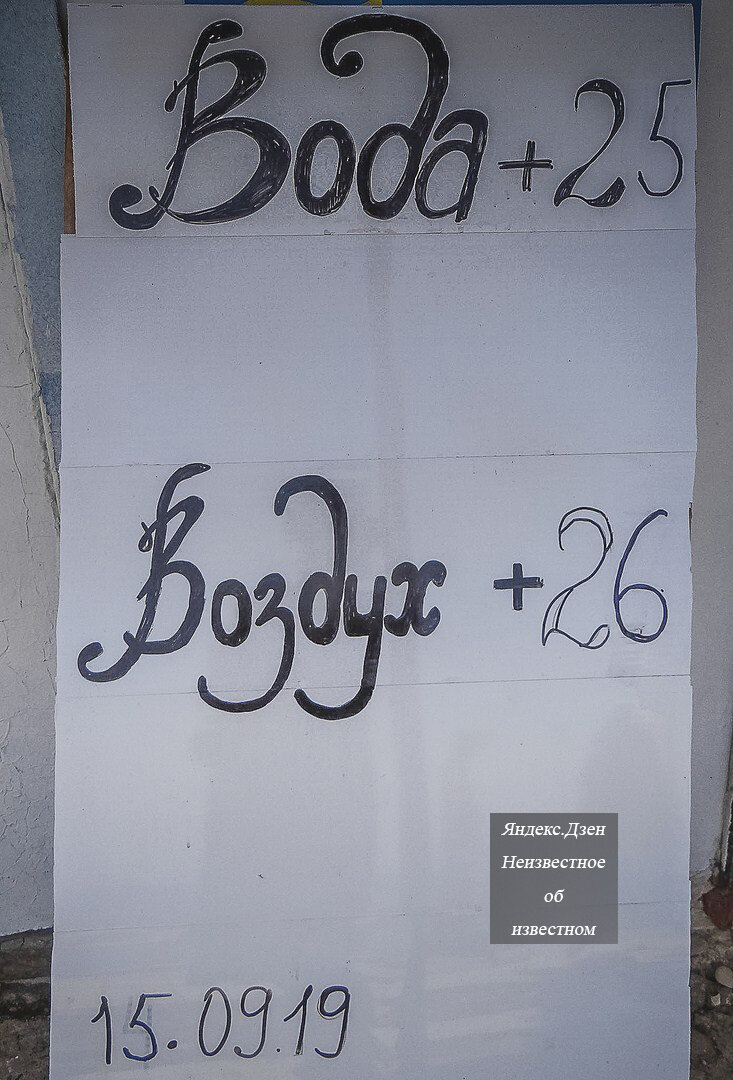 Вода +25
Воздух +26
Яндекс.Дзен
Неизвестное
об
известном
15.09.19